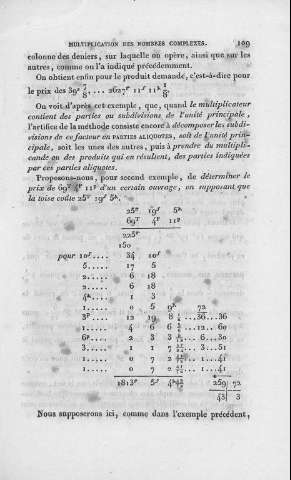 MULTIPLICATION DES NOMBRES COMPLEXES. 109
colonne des deniers, sur laquelle on opère, ainsi que sur les
autres, comme on l'a indiqué précédemment.
On obtient enfin pour le produit demandé, c'est-à-dire pour
le prix des 39ᵖ 7/8, .... 2627ᵖ 11ˢ 11ᵈ 1/8.
On voit d'après cet exemple, que, quand le multiplicateur
contient des parties ou subdivisions de l'unité principale,
l'artifice de la méthode consiste encore à décomposer les subdi-
visions de ce facteur en PARTIES ALIQUOTES, soit de l'unité prin-
cipale, soit les unes des autres, puis à prendre du multipli-
cande ou des produits qui en résultent, des parties indiquées
par ces parties aliquotes.
Proposons-nous, pour second exemple, de déterminer le
prix de 69ᵀ 4ᴾ 11ᵖ d'un certain ouvrage, en supposant que
la toise coûte 25ᵖ 19ˢ 5ᵈ.
25ᵖ 19ˢ 5ᵈ
69ᵀ 4ᴾ 11ᵖ
225ᵖ
150
pour 10ˢ..... 34 10ˢ
5..... 17 5
2..... 6 18
2..... 6 18
4ᵈ.... 1 3
1..... 0 5 9ᵈ 72
3ᴾ.... 12 19 8 ...36...36
1..... 4 6 6 ...12...60
6ᵖ.... 2 3 3 6...30
3..... 1 1 7 3...51
1..... 0 7 2 1...41
1..... 0 7 2 1...41
1813ᵖ 5ˢ 4ᵈ 259 72
43 3
Nous supposerons ici, comme dans l'exemple précédent,